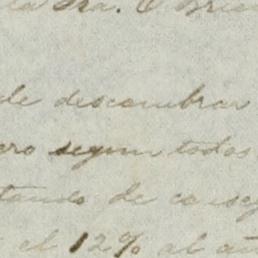 la Sra. O'Brien
de descombrar
ero segun todos
tando de conse
el 12% al añ